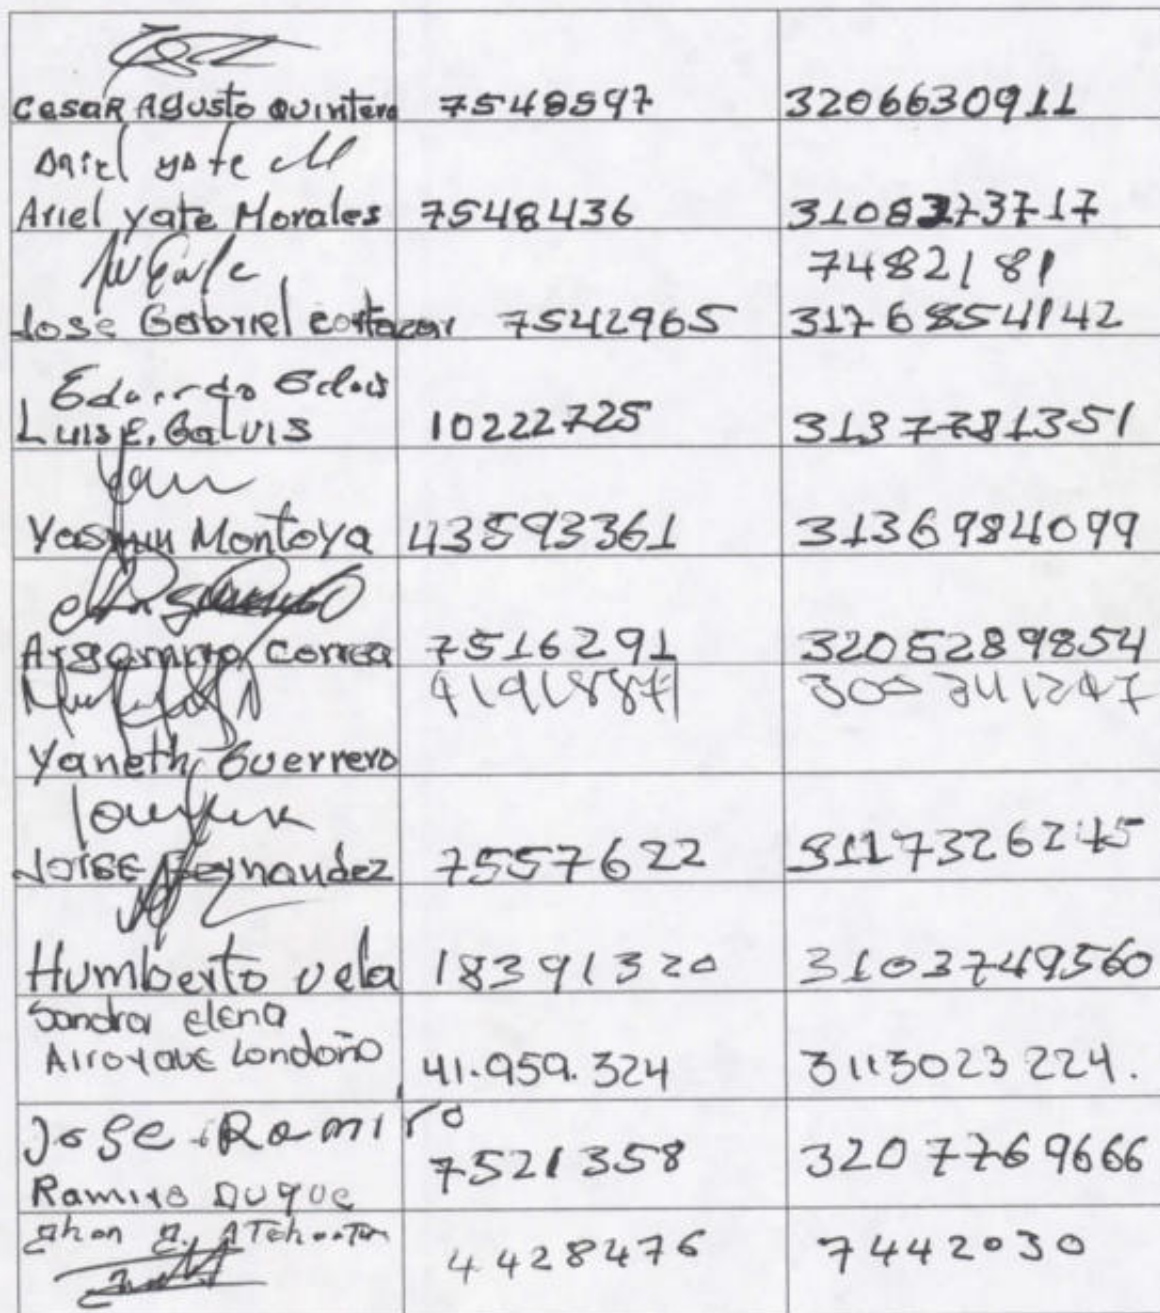 Cesar Agusto Quintero 7548597 3206630911
Ariel yate M
Ariel yate Morales 7548436 3108373717
7482181
Jose Gabriel cortazar 7542965 3176854142
Eduardo Galvis
Luis E. Galvis 10222725 3137781351
Yasmin Montoya 43593361 3136984099
Argemiro correa 7516291 3205289854
41918871 3003411247
Yaneth Guerrero
Joise Fernandez 7557622 3117326245
Humberto vela 18391320 3103749560
Sandra elena
Arroyave Londoño 41.959.324 3113023224.
Jose Ramiro
Ramiro Duque 7521358 3207769666
Jhon 4428476 7442030